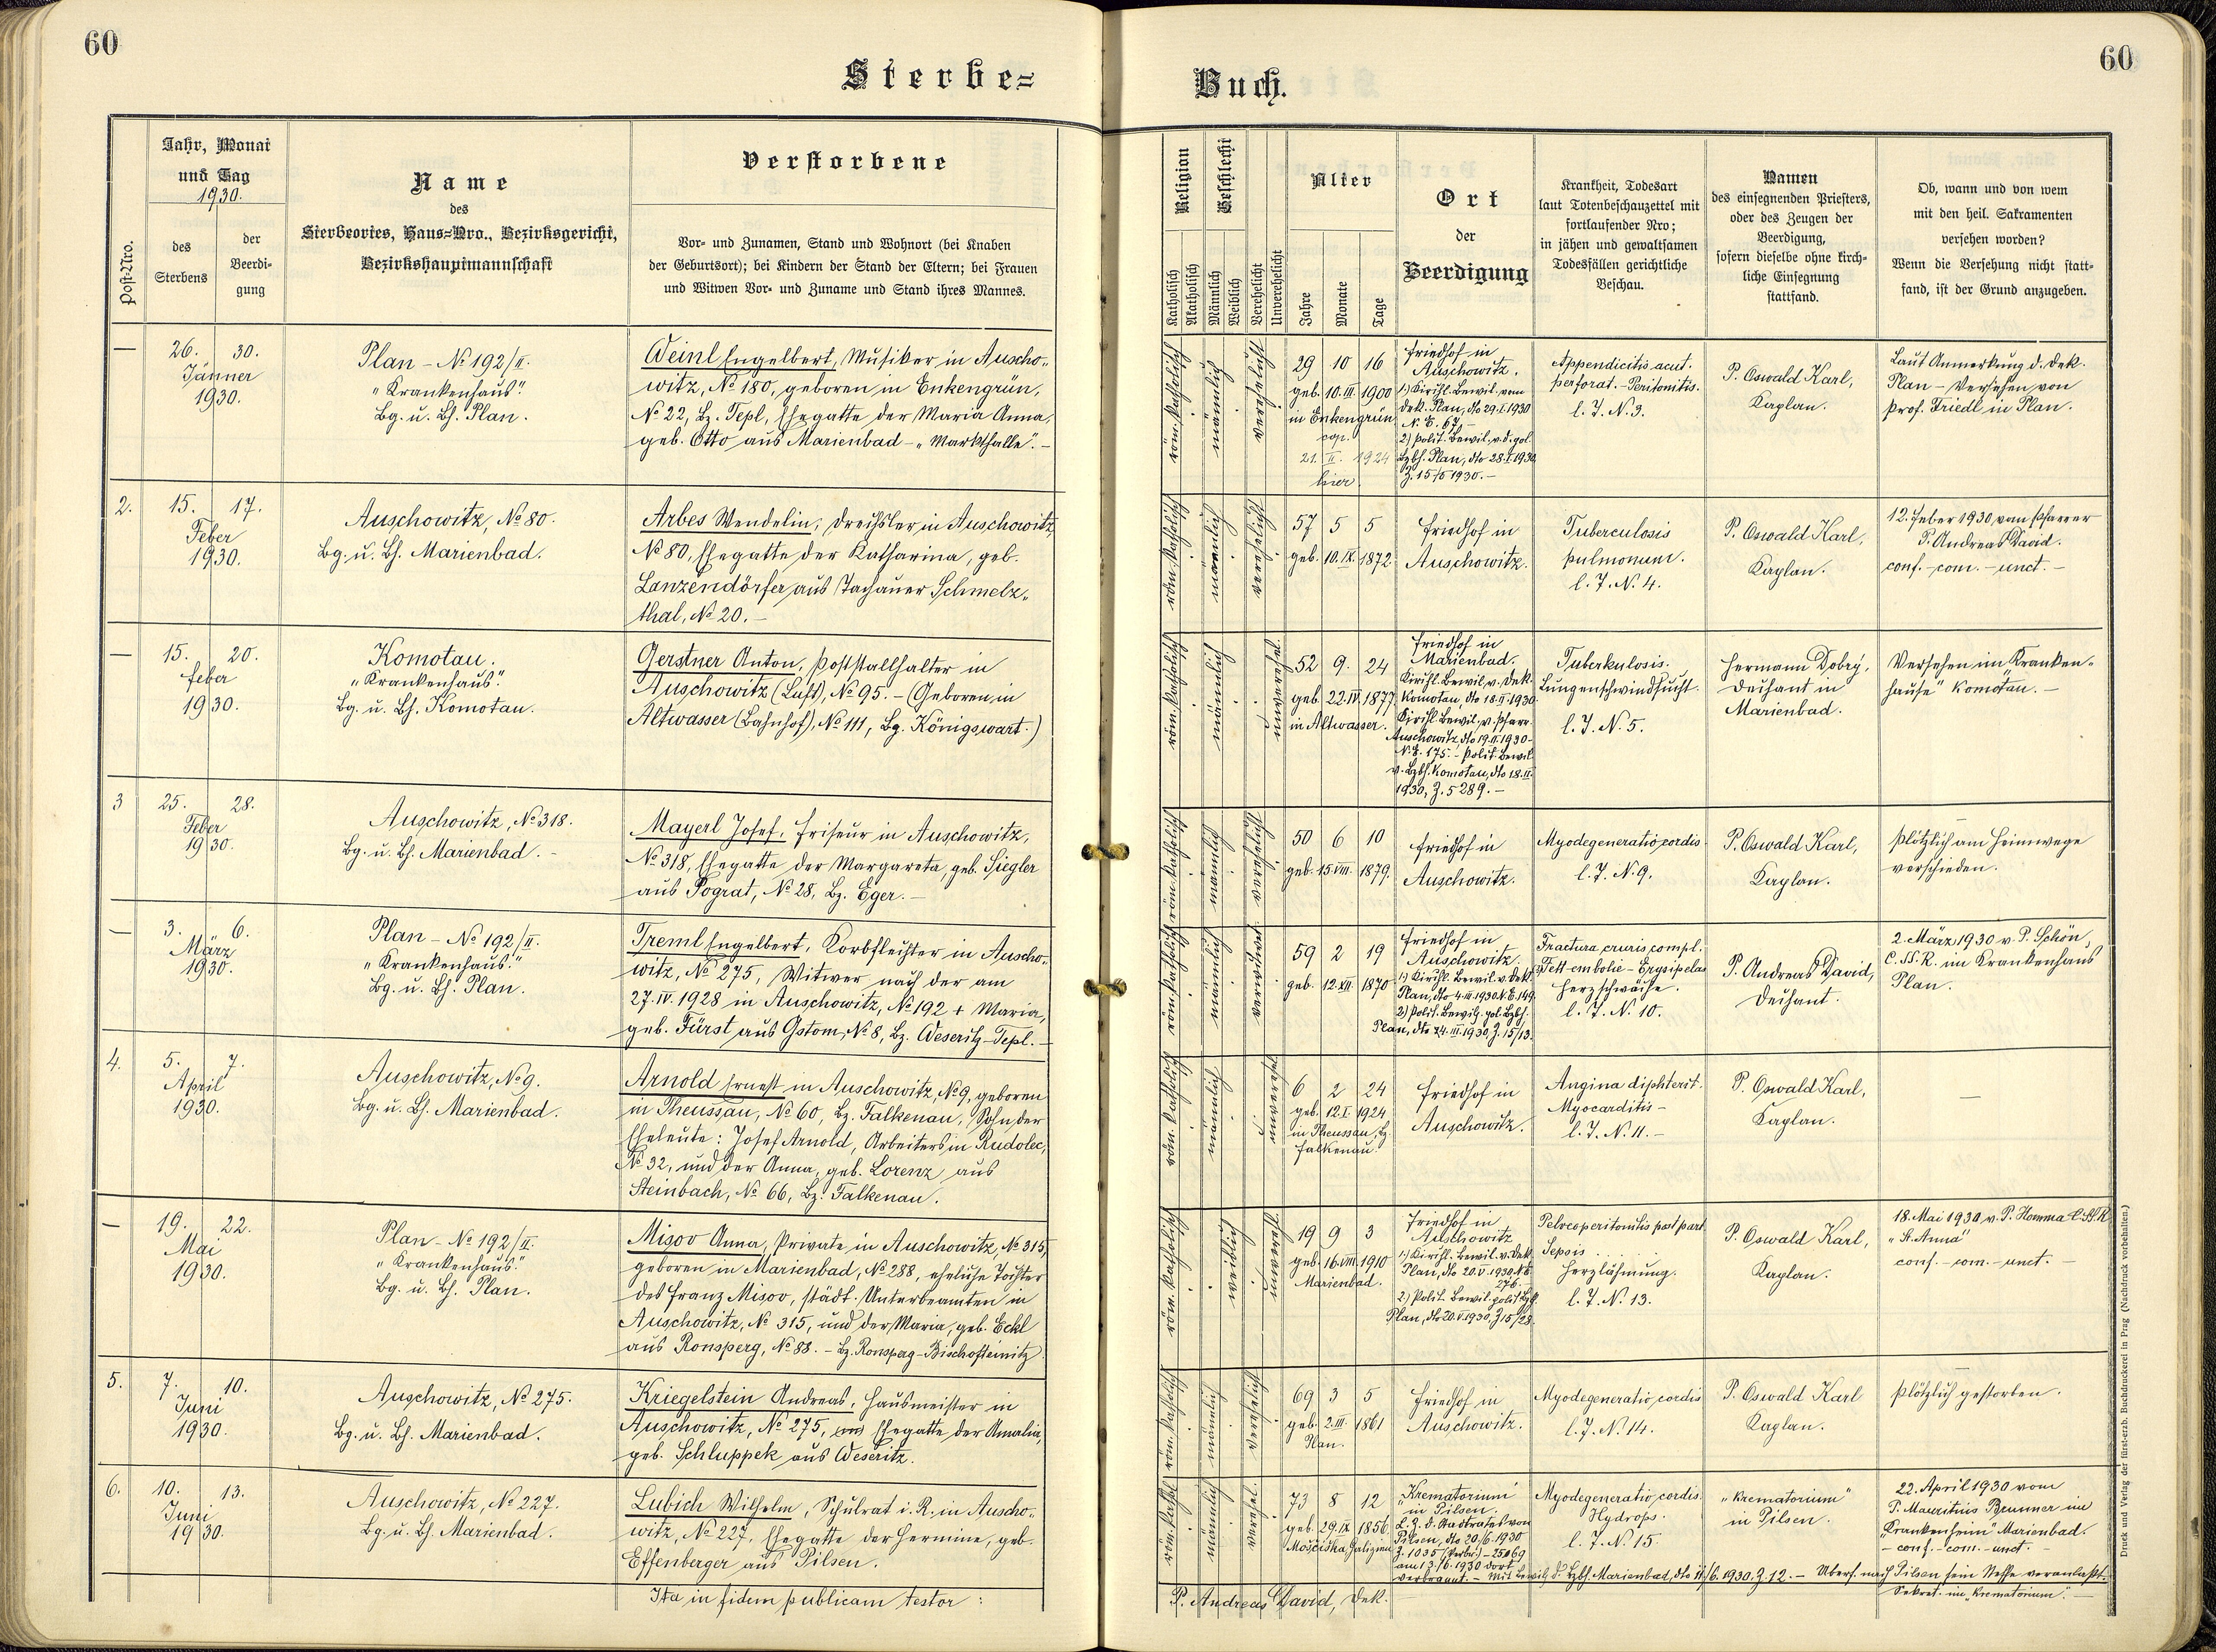 60
60
Sterbe=
Buch.
Post-Nro.
Jahr, Monat
und Tag
1930.
des
Sterbens
der
Beerdi-
gung
Name
des
Sterbeortes, Haus=Nro., Bezirksgericht,
Bezirkshauptmannschaft
Verstorbene
Vor- und Zunamen, Stand und Wohnort (bei Knaben
der Geburtsort); bei Kindern der Stand der Eltern; bei Frauen
und Witwen Vor- und Zuname und Stand ihres Mannes.
Religion
Katholisch
Akatholisch
Geschlecht
Männlich
Weiblich
Verehelicht
Unverehelicht
Alter
Jahre
Monate
Tage
Ort
der
Beerdigung
Krankheit, Todesart
laut Totenbeschauzettel mit
fortlaufender Nro;
in jähen und gewaltsamen
Todesfällen gerichtliche
Beschau.
Namen
des einsegnenden Priesters,
oder des Zeugen der
Beerdigung,
sofern dieselbe ohne kirch-
liche Einsegnung
stattfand.
Ob, wann und von wem
mit den heil. Sakramenten
versehen worden?
Wenn die Versehung nicht statt-
fand, ist der Grund anzugeben.
—
26. 30.
Jänner
1930.
Plan - № 192/II.
"Krankenhaus".
Bg. u. Bh. Plan.
Weinl Engelbert, Musiker in Auscho-
witz, № 180, geboren in Enkengrün,
№ 22, Bz. Tepl, Ehegatte der Maria Anna,
geb. Otto aus Marienbad - "Markthalle". -
röm. katholisch
männlich
verehelicht
29 10 16
geb. 10. III. 1900
in Enkengrün
cop.
21. II. 1924
hier
Friedhof in
Auschowitz.
1) Kirchl. Bewil. vom
Dek. Plan, dto 29.I.1930
N. E. 67. -
2) Polit. Bewil. v. d. pol.
Bzbh. Plan, dto 28.I.1930
Z. 15/5 1930. -
Appendicitis acut.
perforat. - Peritonitis.
l. J. N. 3.
P. Oswald Karl,
Kaplan.
Laut Anmerkung d. Dek.
Plan - Versehen von
Prof. Friedl in Plan.
2.
15. 17.
Feber
1930.
Auschowitz, № 80.
Bg. u. Bh. Marienbad.
Arbes Wendelin, Drechsler in Auschowitz,
№ 80, Ehegatte der Katharina, geb.
Lanzendörfer aus Tachauer Schmelz-
thal, № 20. -
röm. katholisch
männlich
verehelicht
57 5 5
geb. 10. IX. 1872
Friedhof in
Auschowitz.
Tuberculosis
pulmonum.
l. J. N. 4.
P. Oswald Karl,
Kaplan.
12. Feber 1930, vom Pfarrer
P. Andreas David.
conf. - com. - unct. -
—
15. 20.
Feber
1930.
Komotau.
"Krankenhaus".
Bg. u. Bh. Komotau.
Gerstner Anton, Poststallhalter in
Auschowitz (Luft), № 95. - (Geboren in
Altwasser (Bahnhof), № 111, Bg. Königswart.)
röm. katholisch
männlich
unverehel.
52 9. 24
geb. 22. IV. 1877.
in Altwasser.
Friedhof in
Marienbad.
Kirchl. Bewil. v. Dek.
Komotau, dto 18.II.1930
Kirchl. Bewil. v. Pfarr.
Auschowitz, dto 19.II.1930 -
N. E. 175. - Polit. Bewil.
v. Bzbh. Komotau, dto 18.II.
1930, Z. 5289. -
Tuberkulosis.
Lungenschwindsucht.
l. J. N. 5.
Hermann Dobry,
Dechant in
Marienbad.
Versehen im "Kranken-
hause" Komotau. -
3
25. 28.
Feber
1930.
Auschowitz, № 318.
Bg. u. Bh. Marienbad. -
Mayerl Josef, Friseur in Auschowitz,
№ 318, Ehegatte der Margareta, geb. Siegler
aus Pograt, № 28, Bz. Eger. -
röm. katholisch
männlich
verehelicht
50 6 10
geb. 15. VIII. 1879.
Friedhof in
Auschowitz.
Myodegeneratio cordis
l. J. N. 9.
P. Oswald Karl,
Kaplan.
Plötzlich am Heimwege
verschieden.
—
3. 6.
März
1930.
Plan - № 192/II.
"Krankenhaus".
Bg. u. Bh. Plan.
Treml Engelbert, Korbflechter in Auscho-
witz, № 275, Witwer nach der am
27. IV. 1928 in Auschowitz, № 192 + Maria,
geb. Fürst aus Gstom, № 8, Bz. Weseritz-Tepl. -
röm. katholisch
männlich
verwitwet
59 2 19
geb. 12. XII. 1870
Friedhof in
Auschowitz.
1) Kirchl. Bewil. v. Dek.
Plan, dto 4.III.1930 N. E. 149.
2) Polit. Bewilg. pol. Bzbh.
Plan, dto 4.III.1930, Z. 15/13.
Fractura cruris compl.
Fett-embolie - Erysipelas
Herzschwäche.
l. J. N. 10.
P. Andreas David,
Dechant.
2. März 1930 v. P. Schön,
C. SS. R. im Krankenhaus
Plan.
4.
5. 7.
April
1930.
Auschowitz, № 9.
Bg. u. Bh. Marienbad.
Arnold Ernest in Auschowitz, № 9, geboren
in Theussau, № 60, Bz. Falkenau, Sohn der
Eheleute: Josef Arnold, Arbeiters in Rudolec,
№ 32, und der Anna, geb. Lorenz aus
Steinbach, № 66, Bz. Falkenau.
röm. katholisch
männlich
unverehel.
6 2 24
geb. 12. I. 1924
in Theussau, Bz.
Falkenau.
Friedhof in
Auschowitz.
Angina diphterit.
Myocarditis -
l. J. N. 11. -
P. Oswald Karl,
Kaplan.
—
—
19. 22.
Mai
1930.
Plan - № 192/II.
"Krankenhaus".
Bg. u. Bh. Plan.
Misov Anna, Private in Auschowitz, № 315,
geboren in Marienbad, № 288, eheliche Tochter
des Franz Misov, städt. Unterbeamten in
Auschowitz, № 315, und der Maria, geb. Eckl
aus Ronsperg, № 88. - Bz. Ronsperg-Bischofteinitz
röm. katholisch
weiblich
unverehl.
19 9 3
geb. 16. VIII. 1910
Marienbad.
Friedhof in
Auschowitz
1) Kirchl. Bewil. v. Dek.
Plan, dto 20.V.1930 N. E.
276. -
2) Polit. Bewil. polit. Bzh.
Plan, dto 20.V.1930, Z 15/28.
Pelveoperitonitis post part.
Sepsis
Herzlähmung.
l. J. N. 13.
P. Oswald Karl,
Kaplan.
18. Mai 1930 v. P. Homma C. SS. R.
"St. Anna"
conf. - com. - unct. -
5.
7. 10.
Juni
1930.
Auschowitz, № 275.
Bg. u. Bh. Marienbad.
Kriegelstein Andreas, Hausmeister in
Auschowitz, № 275, Ehegatte der Amalia,
geb. Schluppek aus Weseritz.
röm. katholisch
männlich
verehelicht
69 3 5
geb. 2. III. 1861
Plan.
Friedhof in
Auschowitz.
Myodegeneratio cordis
l. J. N. 14.
P. Oswald Karl
Kaplan.
Plötzlich gestorben.
6.
10. 13.
Juni
1930.
Auschowitz, № 227.
Bg. u. Bh. Marienbad.
Lubich Wilhelm, Schulrat i. R. in Auscho-
witz, № 227, Ehegatte der Hermine, geb.
Effenberger aus Pilsen.
röm. kathol.
männlich
verehel.
73 8 12
geb. 29. IX 1856.
Mościska, Galizien
"Krematorium"
in Pilsen.
L. Z. d. Stadtrates von
Pilsen, dto 20/6. 1930
Z. 1035 - 25069
am 13./6. 1930 dort
verbrannt. - Mit Bewilg. d. Bzbh. Marienbad, dto 11/6. 1930. Z. 12. - Überf. nach Pilsen sein Neffe veranlaßt.
Myodegeneratio cordis.
Hydrops.
l. J. N. 15.
"Krematorium"
in Pilsen.
22. April 1930 vom
P. Mauritius Brunner im
"Krankenheim" Marienbad.
- conf. - com. - unct. -
Sekret. im "Krematorium". -
Ita in fidem publicam testor:
P. Andreas David, Dek.
Druck und Verlag der fürst-erzb. Buchdruckerei in Prag (Nachdruck vorbehalten.)